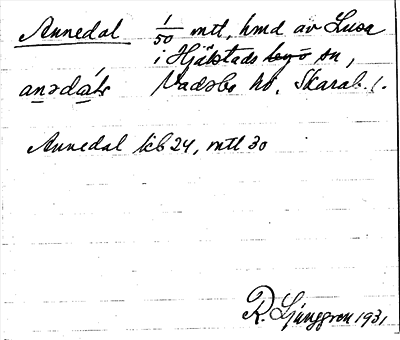 Annedal 1/50 mtl, hmd av Lusa
i Hjälstads sn,
Vadsbo hd. Skarab. l.
Annedal kb 24, mtl 30
R. Ljunggren 1931